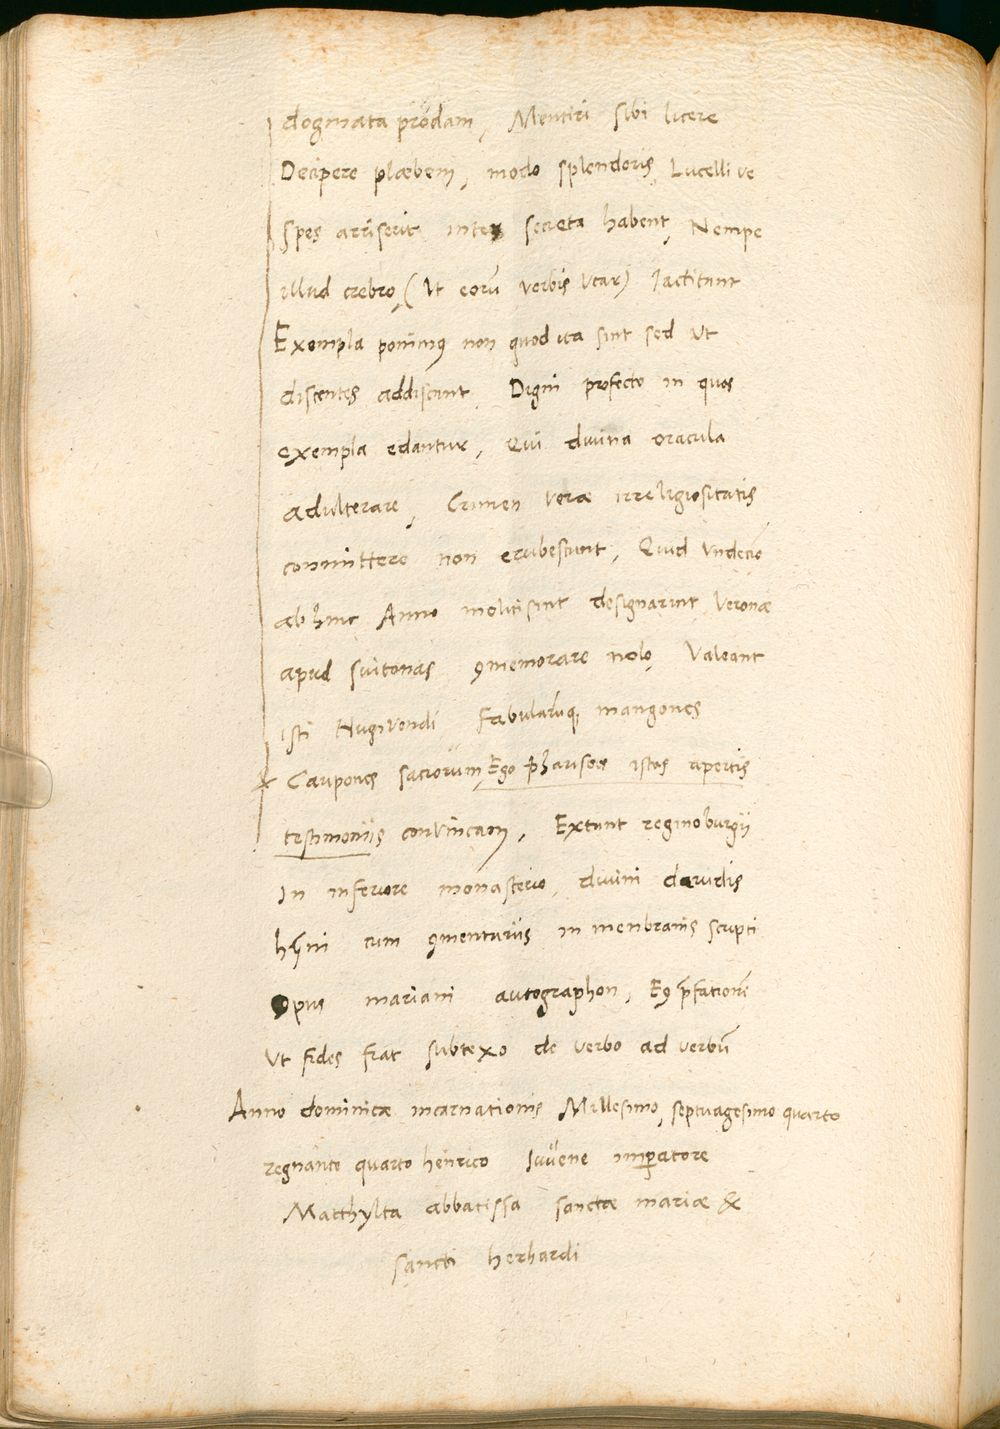 dogmata prodam, Mentiri sibi licere
Decipere plæbem, modo splendoris, Lucelli ve
spes arriserit inter secreta habent, Nempe
illud crebro, (Ut eorū verbis Utar) Jactitant
Exempla ponimꝰ non quod ita sint sed Ut
discentes addiscant Digni profecto in quos
exempla edantur, Qui divina oracula
adulterare, Crimen veræ irreligiositatis
committere non erubescunt, Quid Undecīo
abhinc Anno moliti sint designarint Veronæ
apud suitonas ꝯmemorare nolo, Valeant
isti Nugivendi Fabularūq, mangones
Caupones sacrorum, Ego Pharisæos istos apertis
testimoniis convincam, Extant reginoburgii
In inferiore monasterio, divini davidis
hȳni cum ꝯmentariis in menbranis scripti
Opus mariani autographon, Eꝰ p̄fationē
Ut fides fiat subtexo de verbo ad verbū
Anno dominicæ incarnationis Millesimo, septuagesimo quarto
regnante quarto henrico Iuvene imꝑatore
Matthylta abbatissa sanctæ mariæ &
sancti herhardi